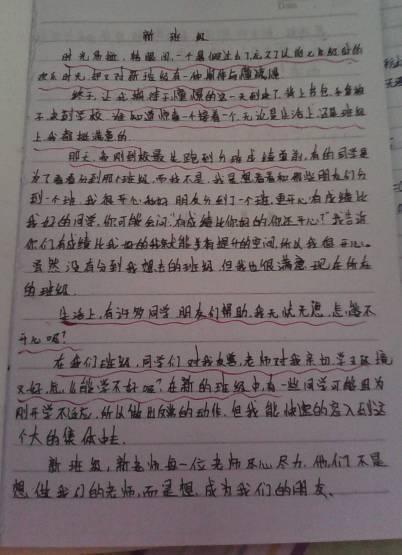 新班级
时光易逝，转眼间，一个暑假过去了，忘了以前
欢乐时光，却又对新班级有一种期待与懂憬
终于，让我期待于懂憬的这一天到来了，背上书包
来到学校，谁知道惊喜一个接着一个，无论是生活上，还是班级
上，我都挺满意的
那天，我刚到校最先跑到分班表检查新，有的同学是
为了看看分到那个班级，而我不是，我是想看看和那些朋友们分
到一个班，我很开心和好朋友分到了一个班，更开心有成绩比
我好的同学，你可能会问："有成绩比你好的，你还开心？"我告诉
你们有成绩比我好的我才能够有提升的空间，所以我很开心。
虽然没有分到我想去的班级，但我也很满意现在所在
的班级
生活上，有许多同学，朋友们帮助，我无忧无虑，怎能不
开心呢？
在我们班级，同学们对我友善，老师对我亲切，学习环境
又好，怎么能学不好呢？在新的班级中，有一些同学可能因为
刚开学不适应，所以做出反常的动作，但我能快速的容入到这
个大的集体中去
新班级，新老师每一位老师尽心尽力，他们不是
想做我们的老师，而是想成为我们的朋友、